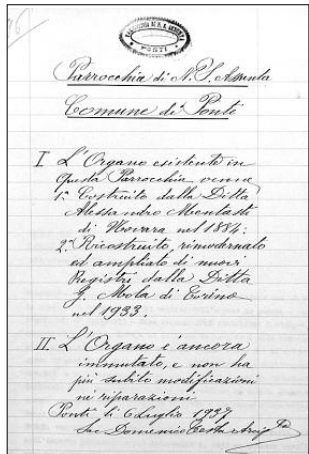 PARROCCHIA DI N. S. ASSUNTA
PONTI
Parrocchia di N. S. Assunta
Comune di Ponti
I. L'Organo esistente in
Questa Parrocchia venne
1º Costruito dalla Ditta
Alessandro Mentasti
di Novara nel 1884:
2º Ricostruito, rimodernato
ed ampliato di nuovi
Registri dalla Ditta
G. Mola di Torino
nel 1933.
II. L'Organo è ancora
immutato, e non ha
più subito modificazioni
nè riparazioni
Ponti li 6 Luglio 1937
Sac Domenico Testa